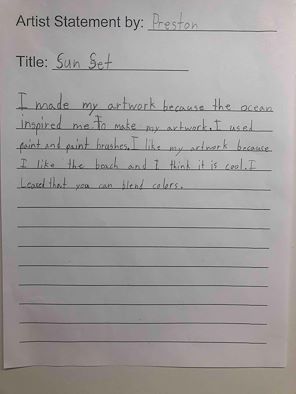 Artist Statement by: Preston
Title: Sun Set
I made my artwork because the ocean
inspired me to make my artwork. I used
paint and paint brushes. I like my artwork because
I like the beach and I think it is cool. I
Leaned that you can blend colors.